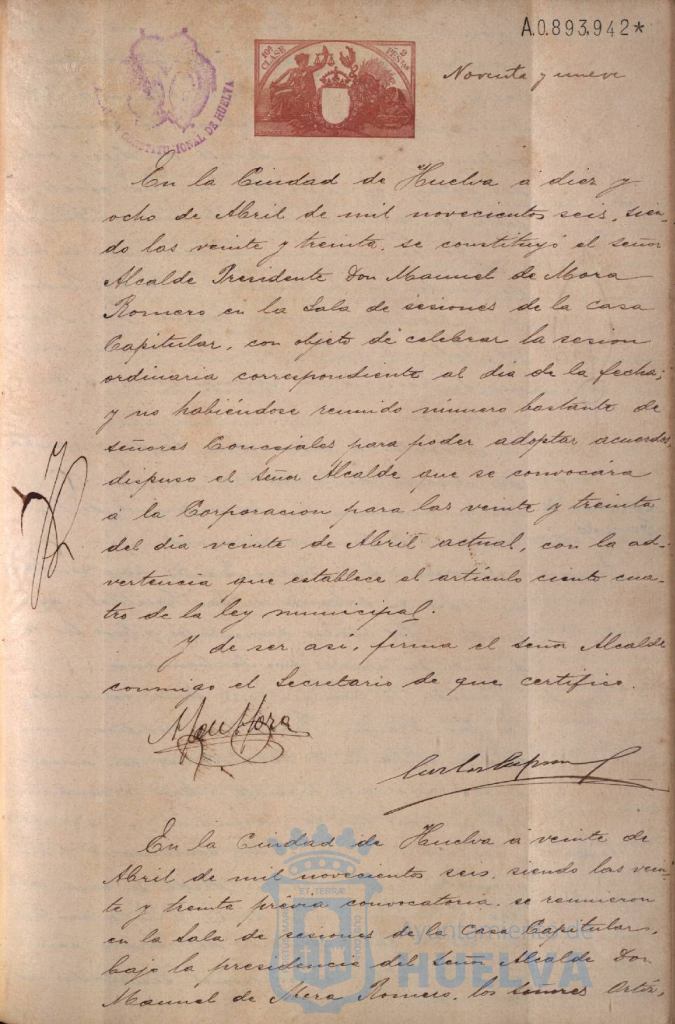 A.0.893,942*
10ª CLASE
2 PESETAS
CONSTITUCIONAL DE HUELVA
Noventa y nueve
En la Ciudad de Huelva á diez y
ocho de Abril de mil novecientos seis, sien-
do las veinte y treinta, se constituyó el señor
Alcalde Presidente Don Manuel de Mora
Romero en la Sala de sesiones de la casa
Capitular, con objeto de celebrar la sesion
ordinaria correspondiente al dia de la fecha;
y no habiéndose reunido número bastante de
señores Concejales para poder adoptar acuerdos,
dispuso el señor Alcalde que se convocára
á la Corporacion para las veinte y treinta
del dia veinte de Abril actual, con la ad-
vertencia que establece el artículo ciento cua-
tro de la ley municipal.
Y de ser así, firma el señor Alcalde
conmigo el Secretario de que certifico.
En la Ciudad de Huelva á veinte de
Abril de mil novecientos seis, siendo las vein-
te y treinta prévia convocatoria, se reunieron
en la Sala de sesiones de la Casa Capitular,
bajo la presidencia del Señor Alcalde Don
Manuel de Mora Romero, los señores Ortiz,
Ayuntamiento de
HUELVA